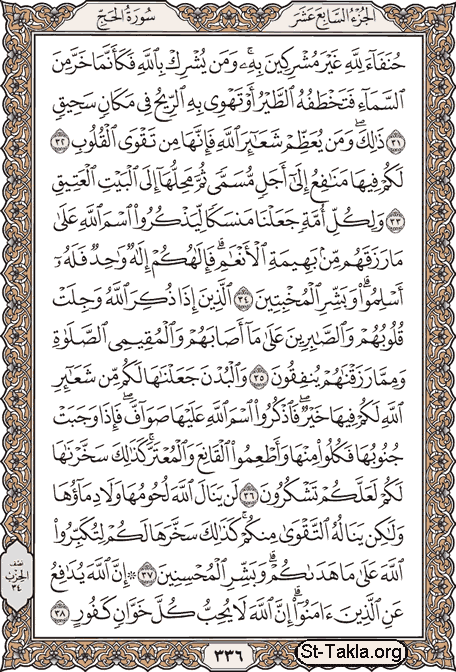 الجزء السابع عشر
سورة الحج
حُنَفَآءَ لِلَّهِ غَيْرَ مُشْرِكِينَ بِهِۦ ۚ وَمَن يُشْرِكْ بِٱللَّهِ فَكَأَنَّمَا خَرَّ مِنَ
ٱلسَّمَآءِ فَتَخْطَفُهُ ٱلطَّيْرُ أَوْ تَهْوِى بِهِ ٱلرِّيحُ فِى مَكَانٍ سَحِيقٍ
٣١ ذَٰلِكَ ۖ وَمَن يُعَظِّمْ شَعَـٰٓئِرَ ٱللَّهِ فَإِنَّهَا مِن تَقْوَى ٱلْقُلُوبِ ٣٢
لَكُمْ فِيهَا مَنَـٰفِعُ إِلَىٰٓ أَجَلٍ مُّسَمًّى ثُمَّ مَحِلُّهَآ إِلَى ٱلْبَيْتِ ٱلْعَتِيقِ
٣٣ وَلِكُلِّ أُمَّةٍ جَعَلْنَا مَنسَكًا لِّيَذْكُرُوا۟ ٱسْمَ ٱللَّهِ عَلَىٰ
مَا رَزَقَهُم مِّنۢ بَهِيمَةِ ٱلْأَنْعَـٰمِ ۗ فَإِلَـٰهُكُمْ إِلَـٰهٌ وَٰحِدٌ فَلَهُۥٓ
أَسْلِمُوا۟ ۗ وَبَشِّرِ ٱلْمُخْبِتِينَ ٣٤ ٱلَّذِينَ إِذَا ذُكِرَ ٱللَّهُ وَجِلَتْ
قُلُوبُهُمْ وَٱلصَّـٰبِرِينَ عَلَىٰ مَآ أَصَابَهُمْ وَٱلْمُقِيمِى ٱلصَّلَوٰةِ
وَمِمَّا رَزَقْنَـٰهُمْ يُنفِقُونَ ٣٥ وَٱلْبُدْنَ جَعَلْنَـٰهَا لَكُم مِّن شَعَـٰٓئِرِ
ٱللَّهِ لَكُمْ فِيهَا خَيْرٌ ۖ فَٱذْكُرُوا۟ ٱسْمَ ٱللَّهِ عَلَيْهَا صَوَآفَّ ۖ فَإِذَا وَجَبَتْ
جُنُوبُهَا فَكُلُوا۟ مِنْهَا وَأَطْعِمُوا۟ ٱلْقَانِعَ وَٱلْمُعْتَرَّ ۚ كَذَٰلِكَ سَخَّرْنَـٰهَا
لَكُمْ لَعَلَّكُمْ تَشْكُرُونَ ٣٦ لَن يَنَالَ ٱللَّهَ لُحُومُهَا وَلَا دِمَآؤُهَا
وَلَـٰكِن يَنَالُهُ ٱلتَّقْوَىٰ مِنكُمْ ۚ كَذَٰلِكَ سَخَّرَهَا لَكُمْ لِتُكَبِّرُوا۟
ٱللَّهَ عَلَىٰ مَا هَدَىٰكُمْ ۗ وَبَشِّرِ ٱلْمُحْسِنِينَ ٣٧ ۞ إِنَّ ٱللَّهَ يُدَٰفِعُ
عَنِ ٱلَّذِينَ ءَامَنُوٓا۟ ۗ إِنَّ ٱللَّهَ لَا يُحِبُّ كُلَّ خَوَّانٍ كَفُورٍ ٣٨
نصف
الحزب
٣٤
٣٣٦
St-Takla.org